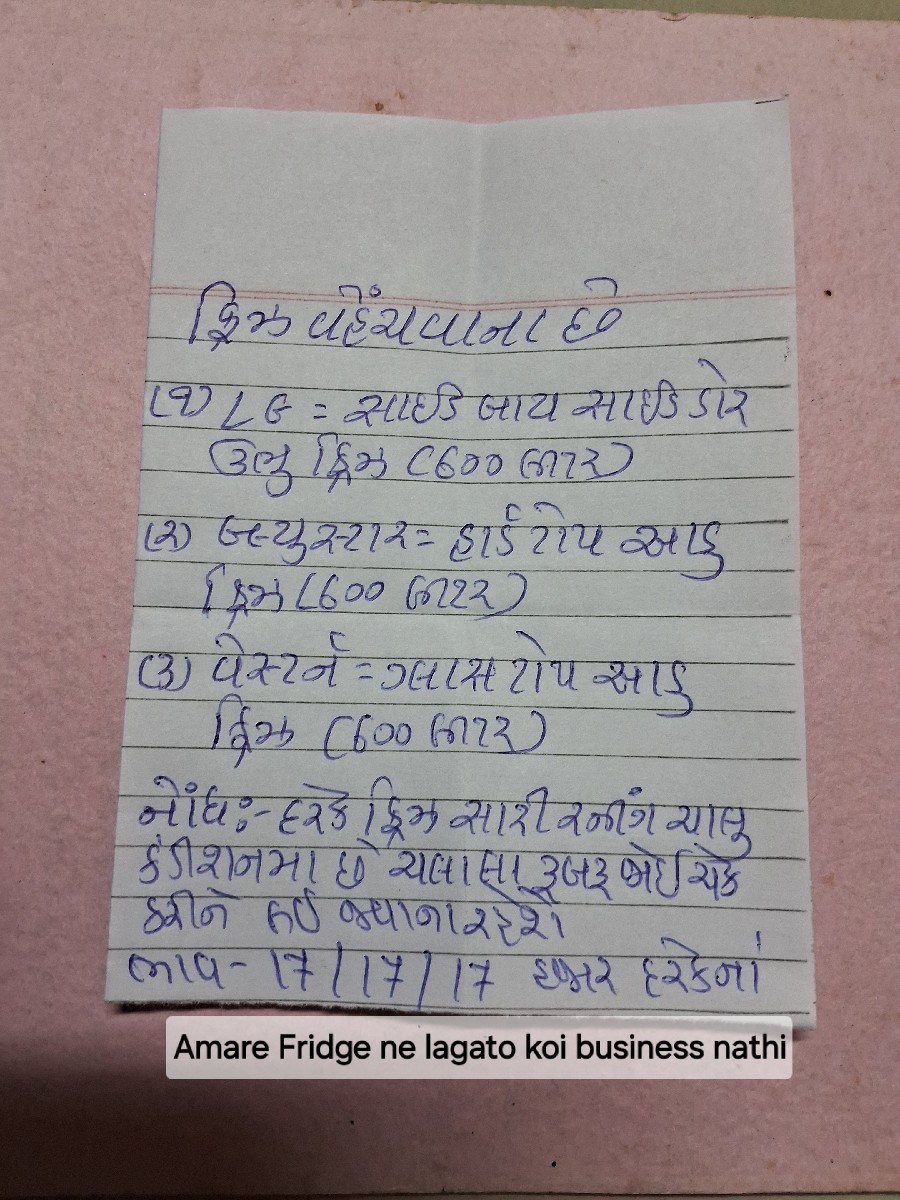 ફ્રિઝ વહેંચવાના છે
(૧) LG = સાઈડ બાય સાઈડ ડોર
ઉભુ ફ્રિઝ (600 લીટર)
(૨) બ્લ્યુસ્ટાર = હાર્ડ ટોપ આડુ
ફ્રિઝ (600 લીટર)
(૩) વેસ્ટર્ન = ગ્લાસ ટોપ આડુ
ફ્રિઝ (600 લીટર)
નોંધઃ- દરેક ફ્રિઝ સારી રનીંગ ચાલુ
કંડીશનમા છે ચલાલા રૂબરૂ જોઈ ચેક
કરીને લઈ જવાના રહેશે
ભાવ - 17 / 17 / 17 હજાર દરેકનાં
Amare Fridge ne lagato koi business nathi